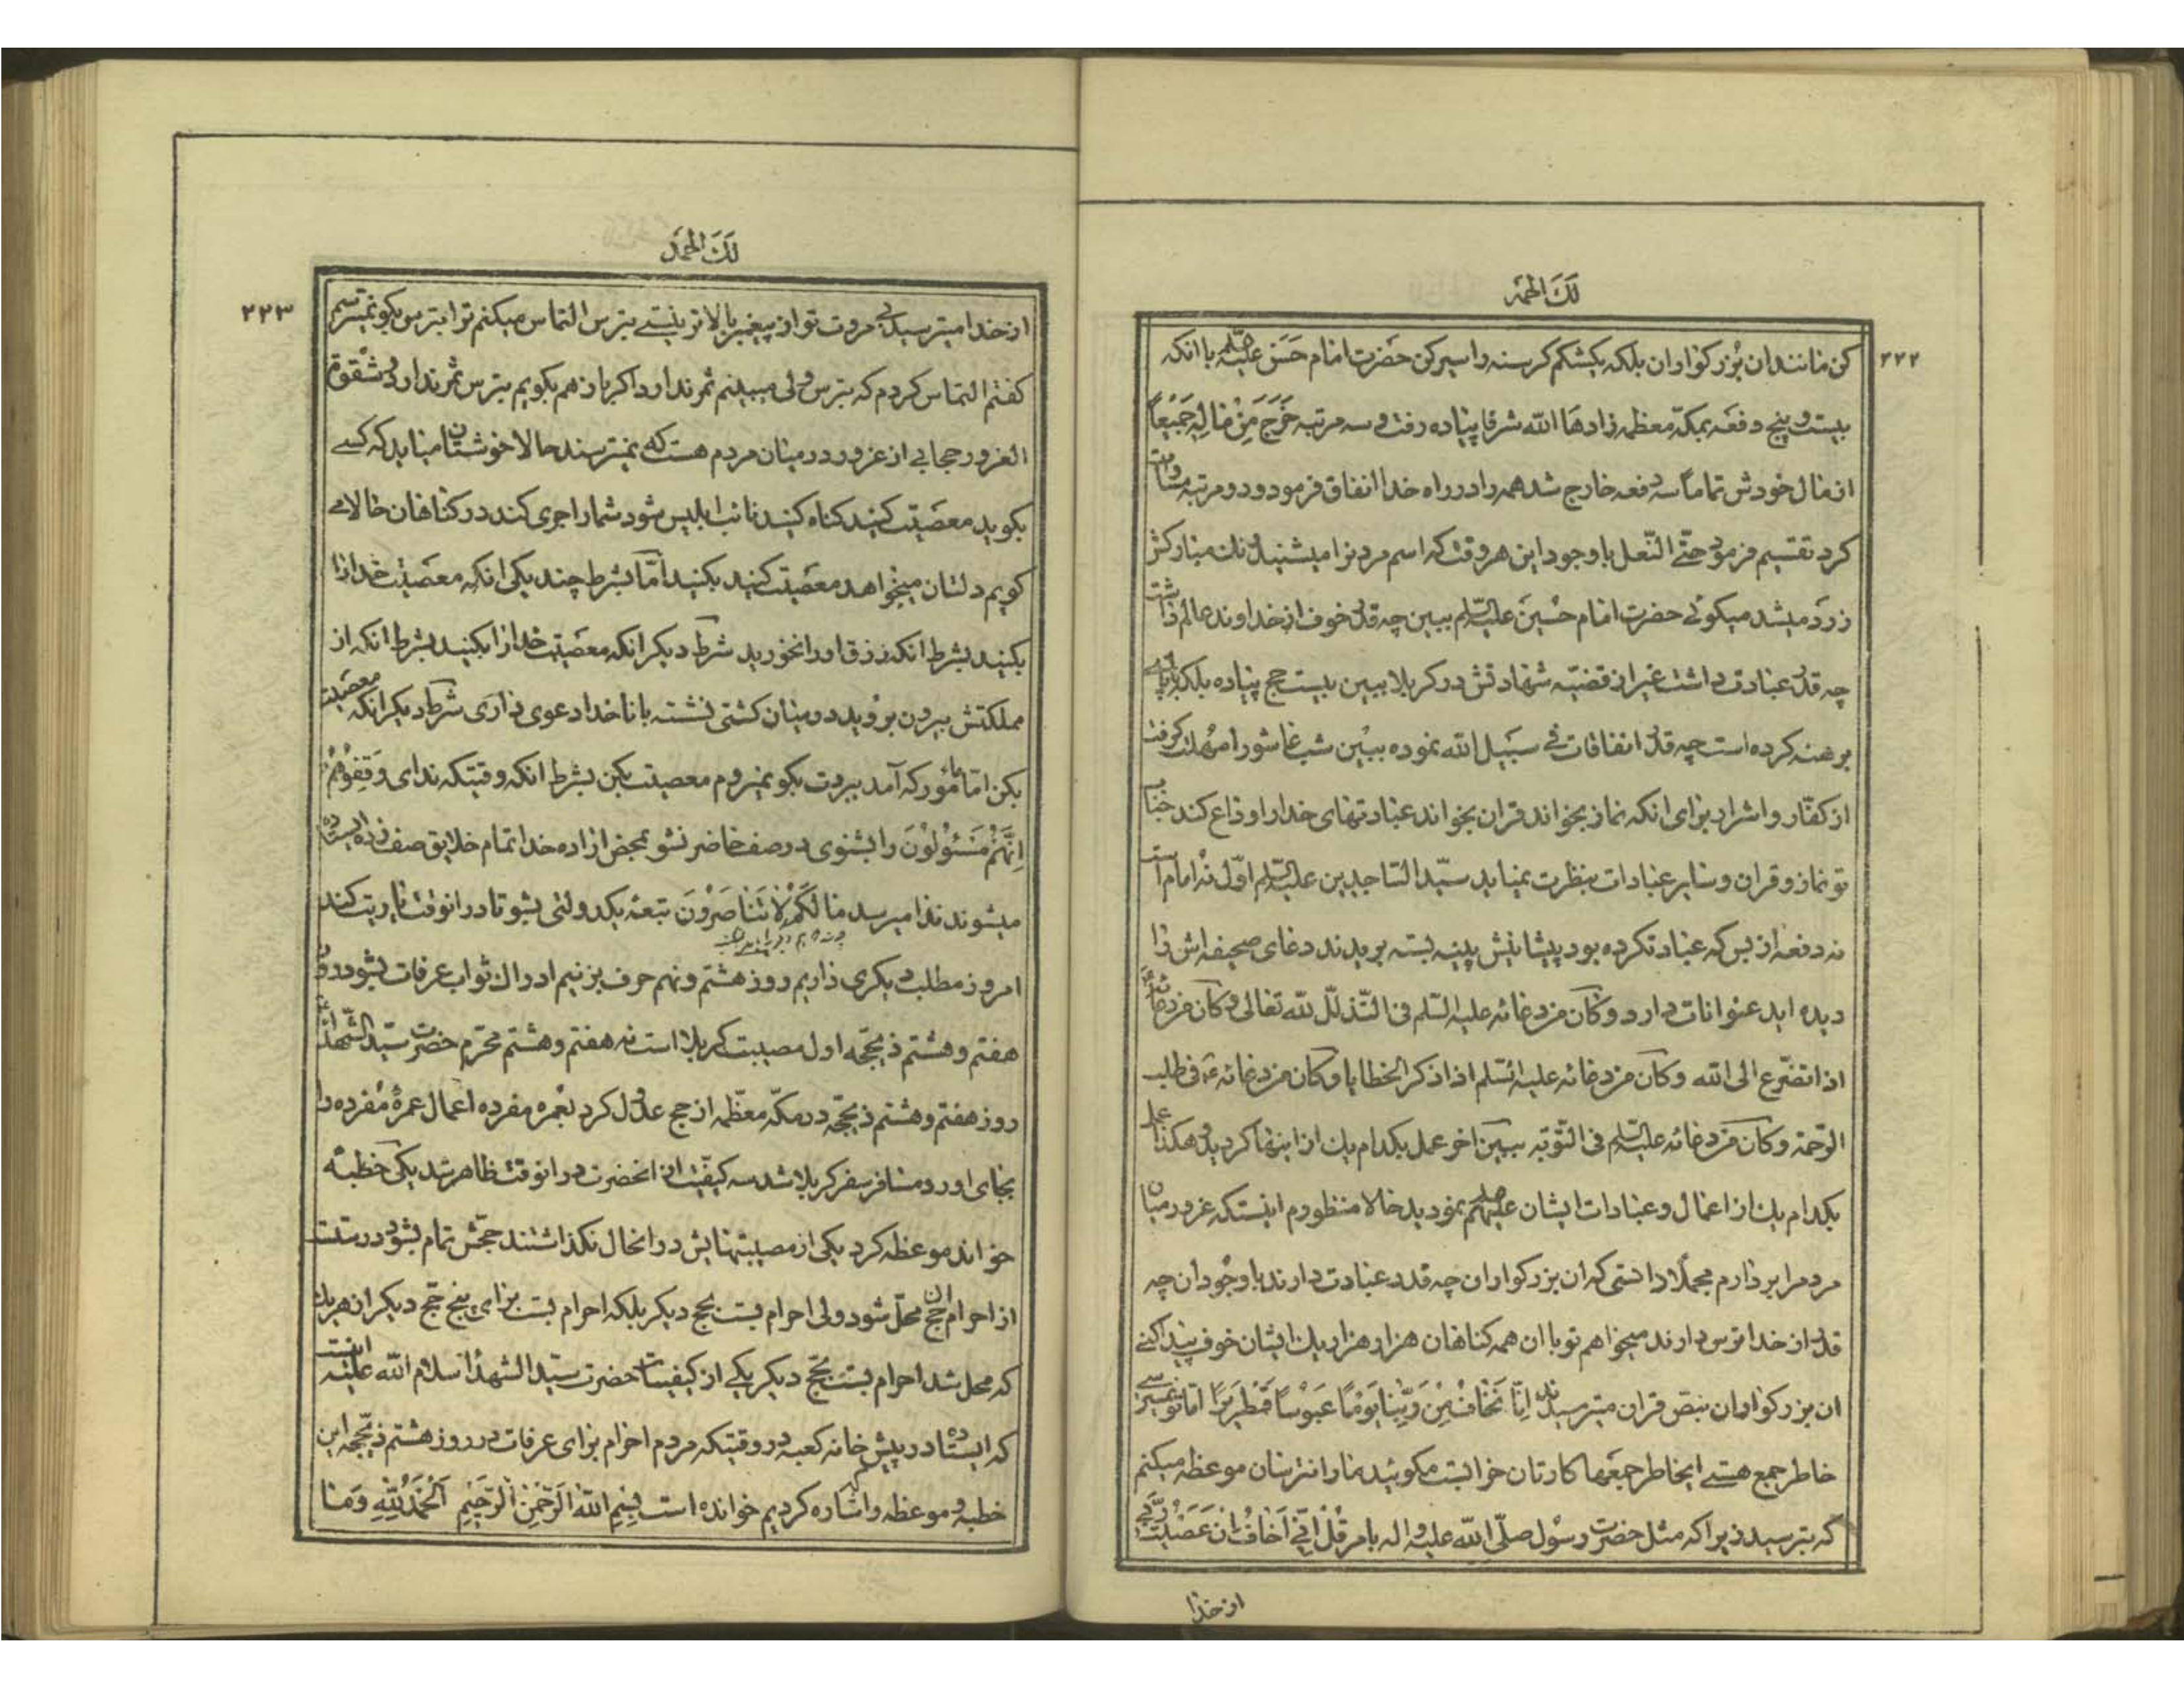 لَكَ الحَمد
۲۲۲
كن مانند ان بزركواران بلكه يكشكم كرسنه را سير كن حضرت امام حَسَن عليه السلم با انكه
بيست و پنج دفعه بمكّه معظمه زادها الله شرفا پياده رفت و سه مرتبه خَرَجَ مِنْ مالِهِ جَميعاً
از مال خودش تماماً سه دفعه خارج شد همه را در راه خدا انفاق فرمود و دو مرتبه مساوات
كرد تقسيم فرمود حتّي النّعل با وجود اين هر وقت كه اسم مردنرا ميشنيد رنك مباركش
زرد ميشد ميكوئي حضرت امام حُسَين عليه السّلم ببين چه قدر خوف از خداوند عالم داشت
چه قدر عبادت داشت غير از قضيّه شهادتش در كربلا ببين بيست حج پياده بلكه با پاي
برهنه كرده است چه قدر انفاقات في سَبيل الله نموده ببين شب عاشورا مهلت كرفت
از كفّار و اشرار براى انكه نماز بخواند قران بخواند عبادتهاى خدا را وداع كند جناب
تو نماز و قران و ساير عبادات بنظرت نميايد سيّد السّاجدين عليه السّلم اوّل نُه امام است
نه دفعه از بس كه عبادت كرده بود پيشانيش پينه بسته بريدند دعاى صحيفه اش را
ديده ايد عنوانات دارد و كان من دعائه عليه السّلم فى التّذلّل لله تعالى و كان من دعائه
اذا تضرّع الى الله و كان من دعائه عليه السّلم اذا ذكر الخطايا و كان من دعائه ع فى طلب
الرّحمة و كان من دعائه عليه السّلم فى التّوبه ببين اخر عمل بكدام يك از اينها كرديد و هكذا عمل
بكدام يك از اعمال و عبادات ايشان عليهم السلم نموديد حالا منظورم اينستكه غرور ميان
مردم را بر دارم مجملاً دانستى كه ان بزركواران چه قدر عبادت دارند با وجود ان چه
قدر از خدا ترس دارند ميخواهم تو با ان همه كناهان هزار هزار يك ايشان خوف پيدا كنى
ان بزركواران بنصّ قران ميترسيدند اِنّا نَخافُ مِنْ رَبِّنا يَوْماً عَبُوساً قَمْطَريراً امّا تو نميترسى
خاطر جمع هستى ايخاطر جمعها كارتان خرابست مكوئيد ما را نترسان موعظه ميكنم
كه بترسيد زيرا كه مثل حضرت رسول صلّى الله عليه و اله بامر قُلْ اِنّى اَخافُ اِن عَصَيْتُ رَبّى
از خدا
لَكَ الحَمد
۲۲۳
از خدا ميترسيد بى مروت تو از پيغمبر بالاتر نيستى بترس التماس ميكنم ترا بترس بكو نميترسم
كفتم التماس كردم كه بترس ولى ميبينم ثمر ندارد اكر باز هم بكويم بترس ثمر ندارد
الغرور حجابى از غرور در ميان مردم هست كه نميترسند حالا خوشتان ميايد كه كسى
بكويد معصيت كنيد كناه كنيد نائب ابليس شود شما را جرى كند در كناهان حالا مى
كويم دلتان ميخواهد معصيت كنيد بكنيد امّا بشرط چند يكى انكه معصيت خدا را
بكنيد بشرط انكه رزق او را نخوريد شرط ديكر انكه معصيت خدا را بكنيد بشرط انكه از
مملكتش بيرون برويد در ميان كشتى نشسته با ناخدا دعوى دارى شرط ديكر انكه معصيت
بكن امّا مأمور كه آمد ببردت بكو نميروم معصيت بكن بشرط انكه وقتيكه نداى وَقِفُوهُمْ
اِنَّهُمْ مَسْئُولُونَ را بشنوى در صف حاضر نشو بمحض اراده خدا تمام خلايق صف زده ايستاده
ميشوند ندا ميرسد ما لَكُمْ لا تَناصَرُونَ تبعه يكدولتى بشو تا در انوقت ياريت كند
امروز مطلب ديكرى داريم روز هشتم و نهم حرف بزنيم ادراك ثواب عرفات بشود روز
هفتم و هشتم ذيحجّه اول مصيبت كربلا است نه هفتم و هشتم محرّم حضرت سيّد الشّهداء
روز هفتم و هشتم ذيحجّه در مكّه معظّمه از حج عدول كرد بعمره مفرده اعمال عمرهٔ مفرده را
بجاى اورد و مسافر سفر كربلا شد سه كيفيّت از انحضرت در انوقت ظاهر شد يكى خطبهٔ
خواند موعظه كرد يكى از مصيبتهايش در انحال نكذاشتند حجّش تمام بشود درست
از احرام ان حج محلّ شود ولى احرام بست بحج ديكر بلكه احرام بست براى پنج حج ديكر از هر يك
كه محل شد احرام بست بحج ديكر يكى از كيفيّات حضرت سيّد الشهدا سلام الله عليه اينست
كه ايستاده در پيش خانه كعبه در وقتيكه مردم احرام براى عرفات در روز هشتم ذيحجّه اين
خطبه و موعظه را كه اشاره كرديم خوانده است بِسْمِ اللهِ الرَّحْمنِ الرَّحيمِ اَلْحَمْدُ لِلّهِ وَ ما